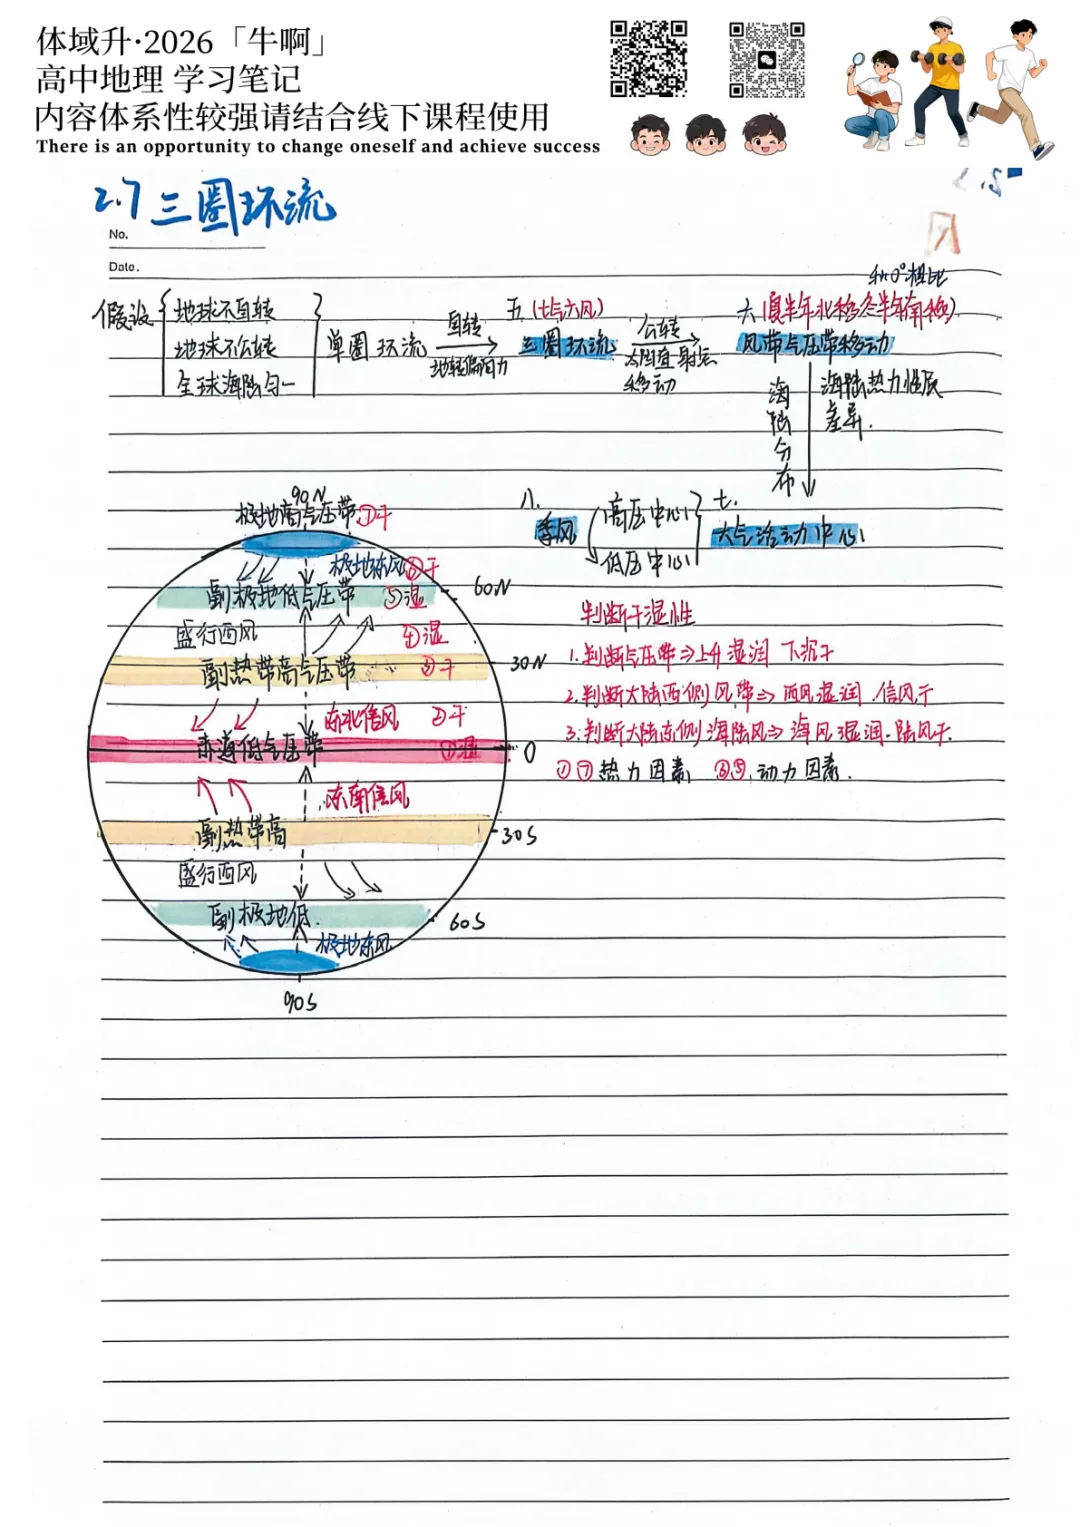 体域升·2026「牛啊」
高中地理 学习笔记
内容体系性较强请结合线下课程使用
There is an opportunity to change oneself and achieve success
2.7 三圈环流
No.
Date.
和0°相比
假设
地球不自转
地球不公转
全球海陆匀一
单圈环流
自转
地转偏向力
五(七气六风)
三圈环流
公转
太阳直射点
移动
六(夏半年北移冬半年南移)
风带气压带移动
海陆分布
海陆热力性质
差异.
八.
季风
高压中心
低压中心
七.
大气活动中心
90N
极地高气压带⑦干
极地东风⑥干
副极地低气压带 ⑤湿
60N
盛行西风 ④湿
副热带高气压带 ③干
30N
东北信风 ②干
赤道低气压带 ①湿
0
东南信风
副热带高
30S
盛行西风
副极地低.
60S
极地东风
90S
判断干湿性
1.判断气压带⇒上升湿润 下沉干
2.判断大陆西侧风带⇒西风湿润.信风干
3.判断大陆东侧海陆风⇒海风湿润.陆风干.
①⑦热力因素 ③⑤,动力因素.